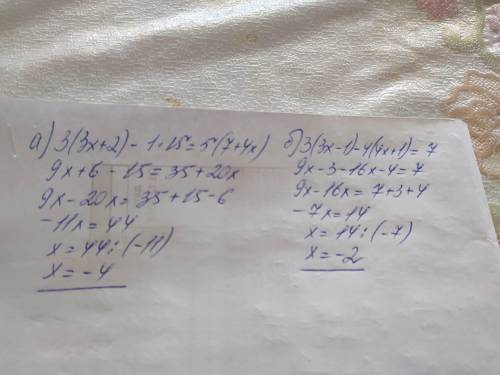 а) 3(3x+2) - 1·15 = 5(7+4x)
9x+6-15 = 35+20x
9x-20x = 35+15-6
-11x = 44
x = 44:(-11)
x = -4
б) 3(3x-1)-4(4x+1) = 7
9x-3-16x-4 = 7
9x-16x = 7+3+4
-7x = 14
x = 14:(-7)
x = -2